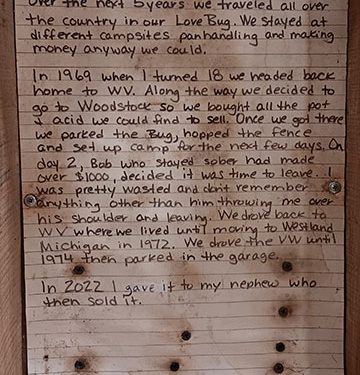 Over the next 5 years we traveled all over
the country in our Love Bug. We stayed at
different campsites panhandling and making
money anyway we could.
In 1969 when I turned 18 we headed back
home to WV. Along the way we decided to
go to Woodstock so we bought all the pot
& acid we could find to sell. Once we got there
we parked the Bug, hopped the fence
and set up camp for the next few days. On
day 2, Bob who stayed sober had made
over $1000, decided it was time to leave. I
was pretty wasted and don't remember
anything other than him throwing me over
his shoulder and leaving. We drove back to
WV where we lived until moving to Westland
Michigan in 1972. We drove the VW until
1974 then parked in the garage.
In 2022 I gave it to my nephew who
then sold it.